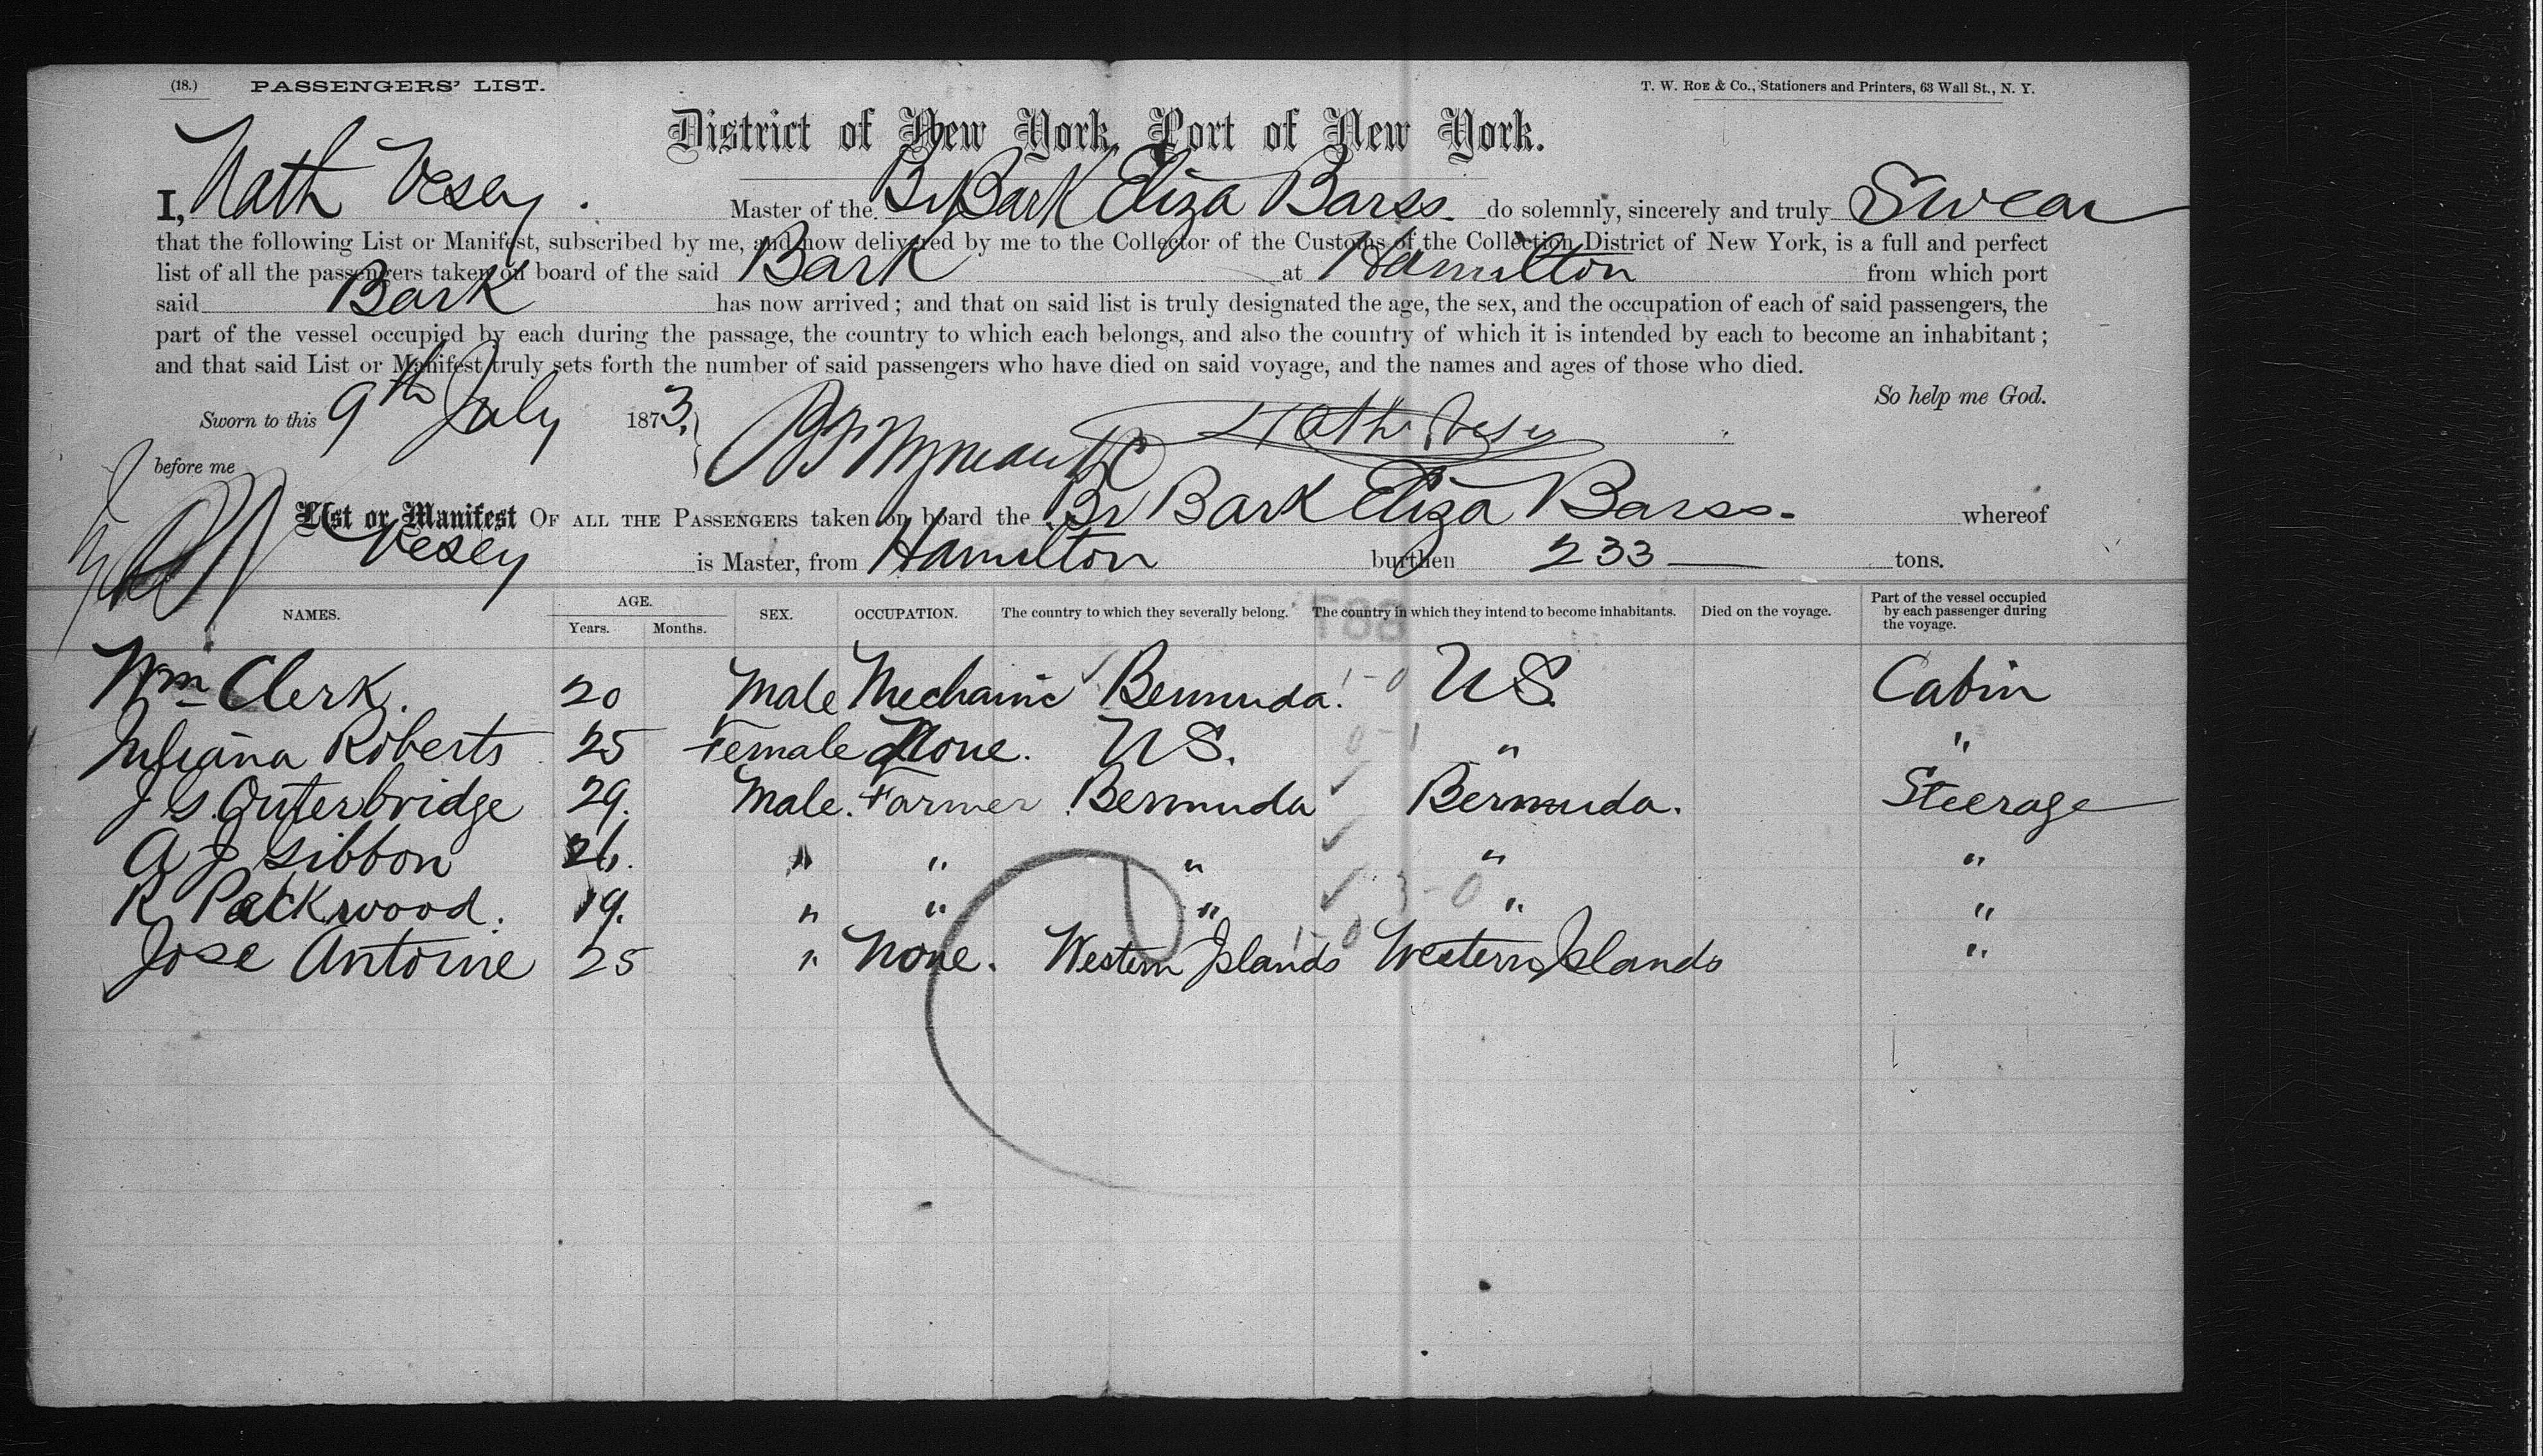 (18.) PASSENGERS' LIST. T. W. ROE & Co., Stationers and Printers, 63 Wall St., N. Y.
District of New York, Port of New York.
I, Nath Vesey. Master of the Br Bark Eliza Barss. do solemnly, sincerely and truly Swear
that the following List or Manifest, subscribed by me, and now delivered by me to the Collector of the Customs of the Collection District of New York, is a full and perfect
list of all the passengers taken on board of the said Bark at Hamilton from which port
said Bark has now arrived; and that on said list is truly designated the age, the sex, and the occupation of each of said passengers, the
part of the vessel occupied by each during the passage, the country to which each belongs, and also the country of which it is intended by each to become an inhabitant;
and that said List or Manifest truly sets forth the number of said passengers who have died on said voyage, and the names and ages of those who died.
So help me God.
Sworn to this 9th July 1873. Nath Vesey
before me
List or Manifest OF ALL THE PASSENGERS taken on board the Br Bark Eliza Barss. whereof
Vesey is Master, from Hamilton burthen 233 tons.
NAMES. AGE. Years. Months. SEX. OCCUPATION. The country to which they severally belong. The country in which they intend to become inhabitants. Died on the voyage. Part of the vessel occupied by each passenger during the voyage.
Wm Clerk. 20 Male Mechanic Bermuda. 1-0 US. Cabin
Juliana Roberts 25 Female None. US. 0-1 " "
J S Outerbridge 29. Male. Farmer Bermuda Bermuda. Steerage
A J Gibbon 26. " " " " "
R Packwood. 19. " " " 3-0 " "
Jose Antoine 25 " None. Western Islands 1-0 Western Islands "